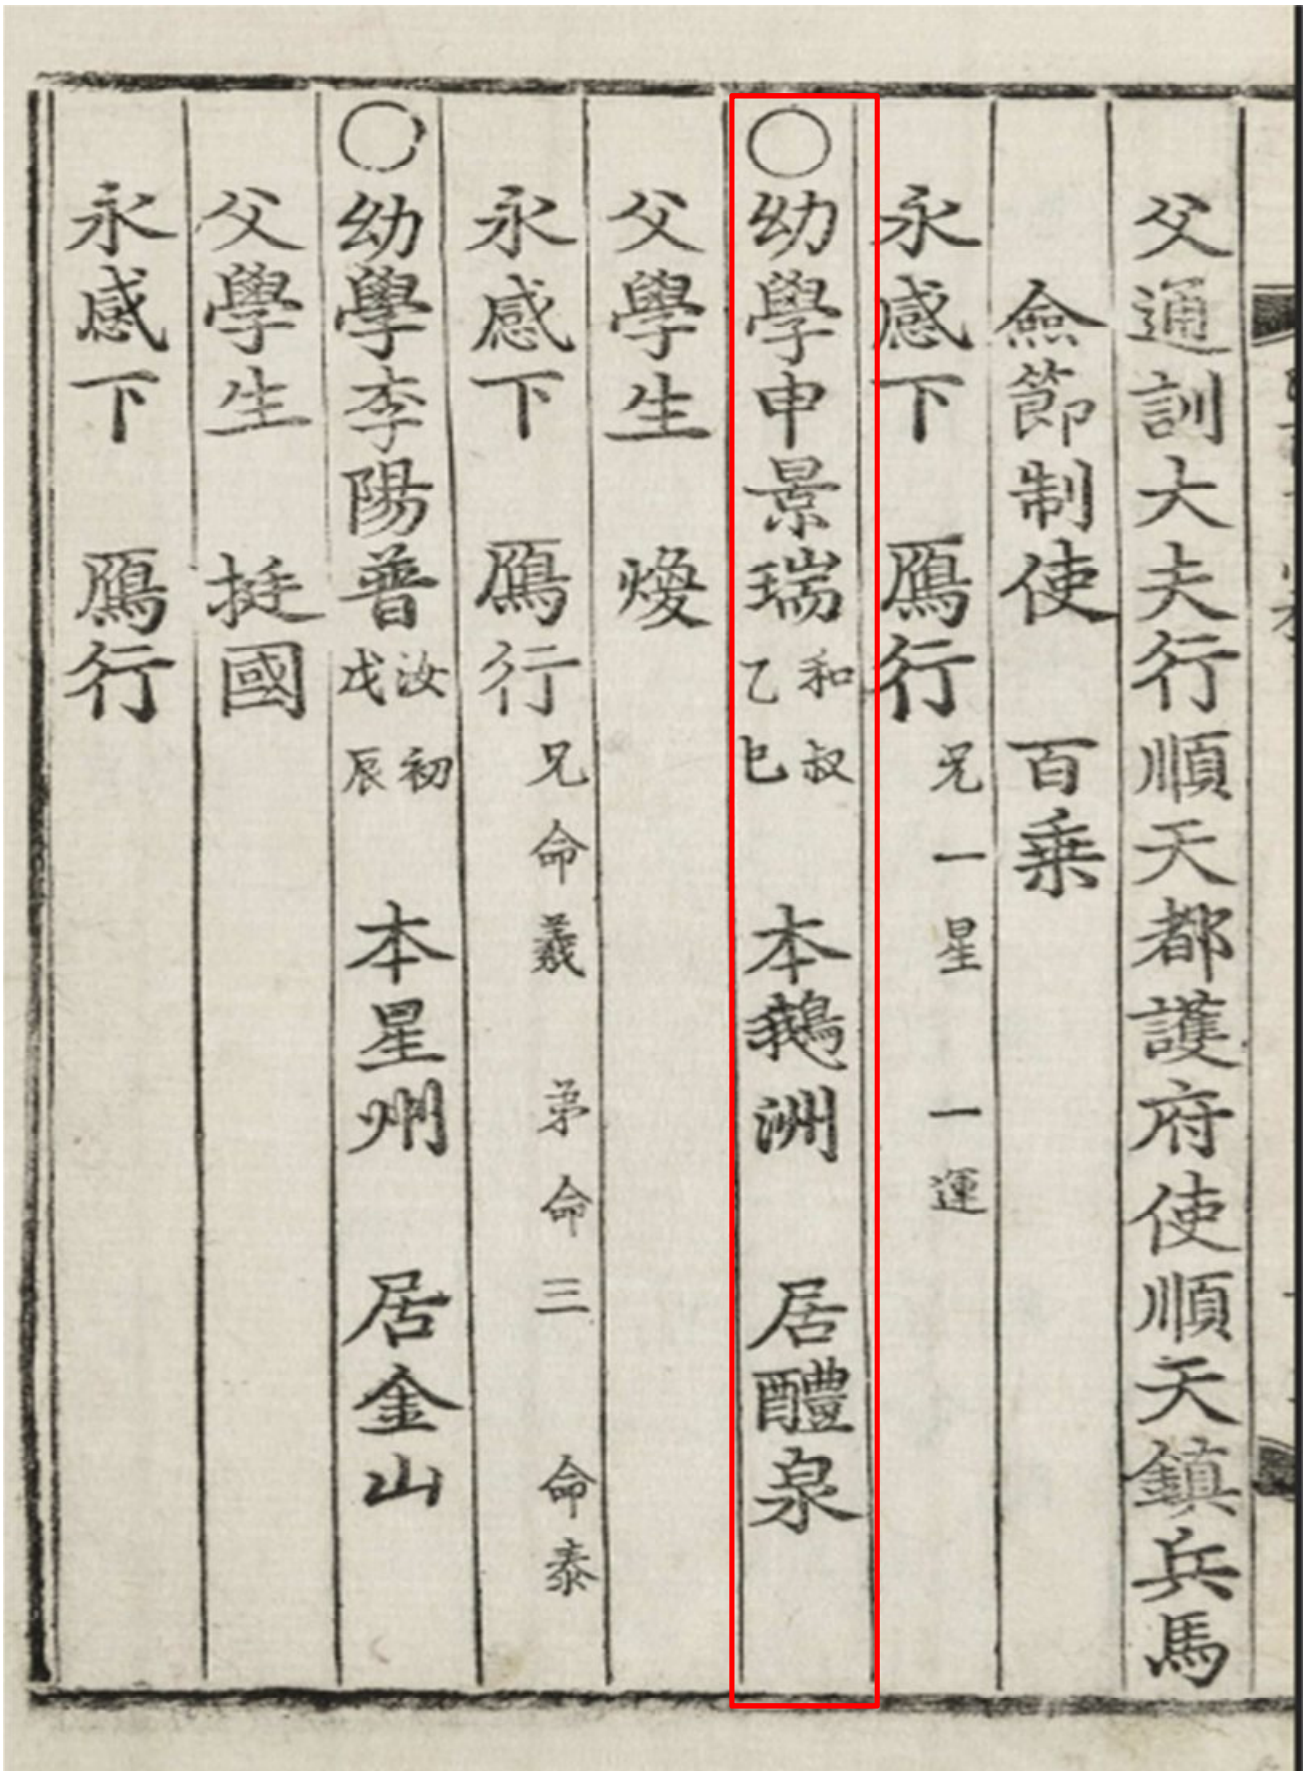 父通訓大夫行順天都護府使順天鎮兵馬
僉節制使 百乗
永感下 鴈行 兄一星 一運
○幼學申景瑞 和叔 乙巳 本鵝洲 居醴泉
父學生 煥
永感下 鴈行 兄命羲 弟命三 命泰
○幼學李陽普 汝初 戊辰 本星州 居金山
父學生 挺國
永感下 鴈行